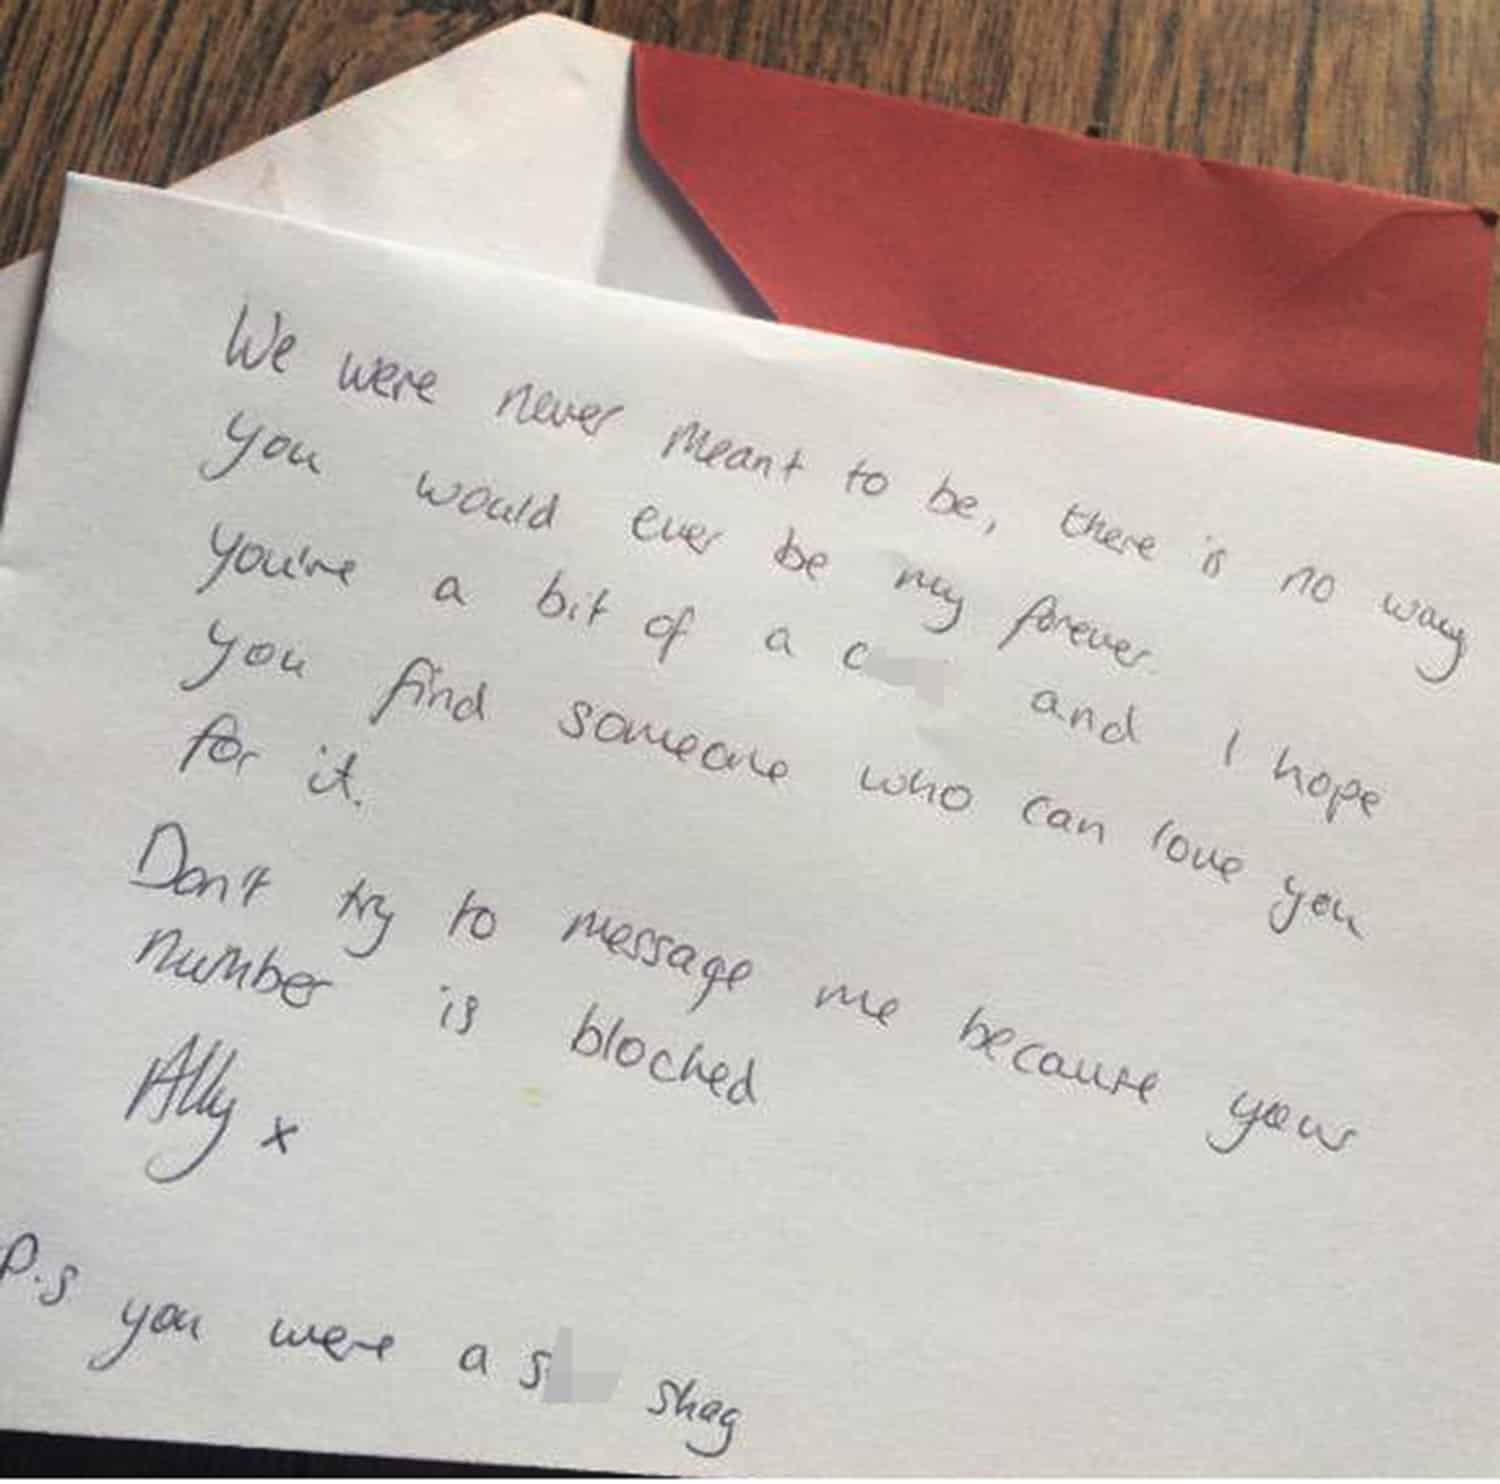 We were never meant to be, there is no way
you would ever be my forever.
you're a bit of a c and I hope
you find someone who can love you
for it.
Don't try to message me because your
number is blocked
Ally x
P.S you were a s shag